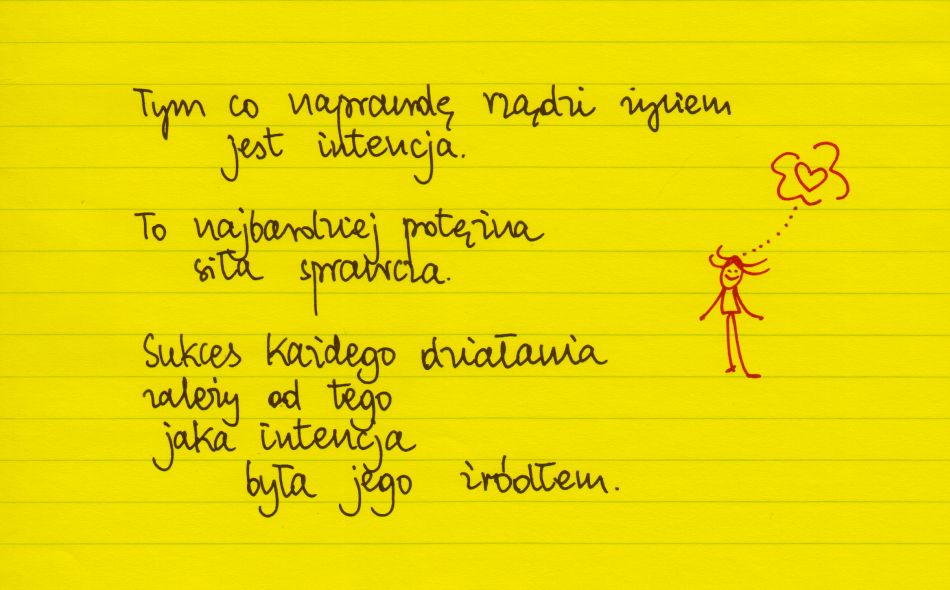 Tym co naprawdę rządzi życiem
jest intencja.
To najbardziej potężna
siła sprawcza.
Sukces każdego działania
zależy od tego
jaka intencja
była jego źródłem.